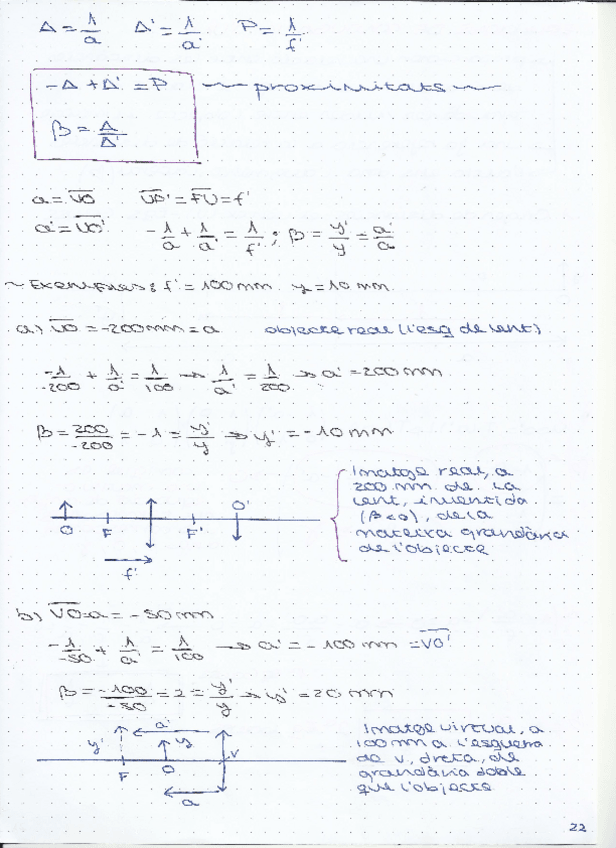 Δ = 1/a   Δ' = 1/a'   P = 1/f'
-Δ + Δ' = P   ~ proximitats ~
β = Δ/Δ'
a = VO   VO' = FU = f'
a' = VO'   -1/a + 1/a' = 1/f' ; β = y'/y = a'/a
~ Exemples: f' = 100 mm   y = 10 mm
a) VO = -200 mm = a   objecte real (l'esq de lent)
-1/-200 + 1/a' = 1/100 → 1/a' = 1/200 → a' = 200 mm
β = 200/-200 = -1 = y'/y → y' = -10 mm
Imatge real, a
200 mm de la
lent, invertida
(β<0), de la
mateixa grandària
de l'objecte
O F F' O'
f'
b) VO=a = -50 mm
-1/-50 + 1/a' = 1/100 → a' = -100 mm = VO'
β = -100/-50 = 2 = y'/y → y' = 20 mm
Imatge virtual, a
100 mm a l'esquerra
de V, dreta, de
grandària doble
que l'objecte
a'
y' y V
F O
a
22